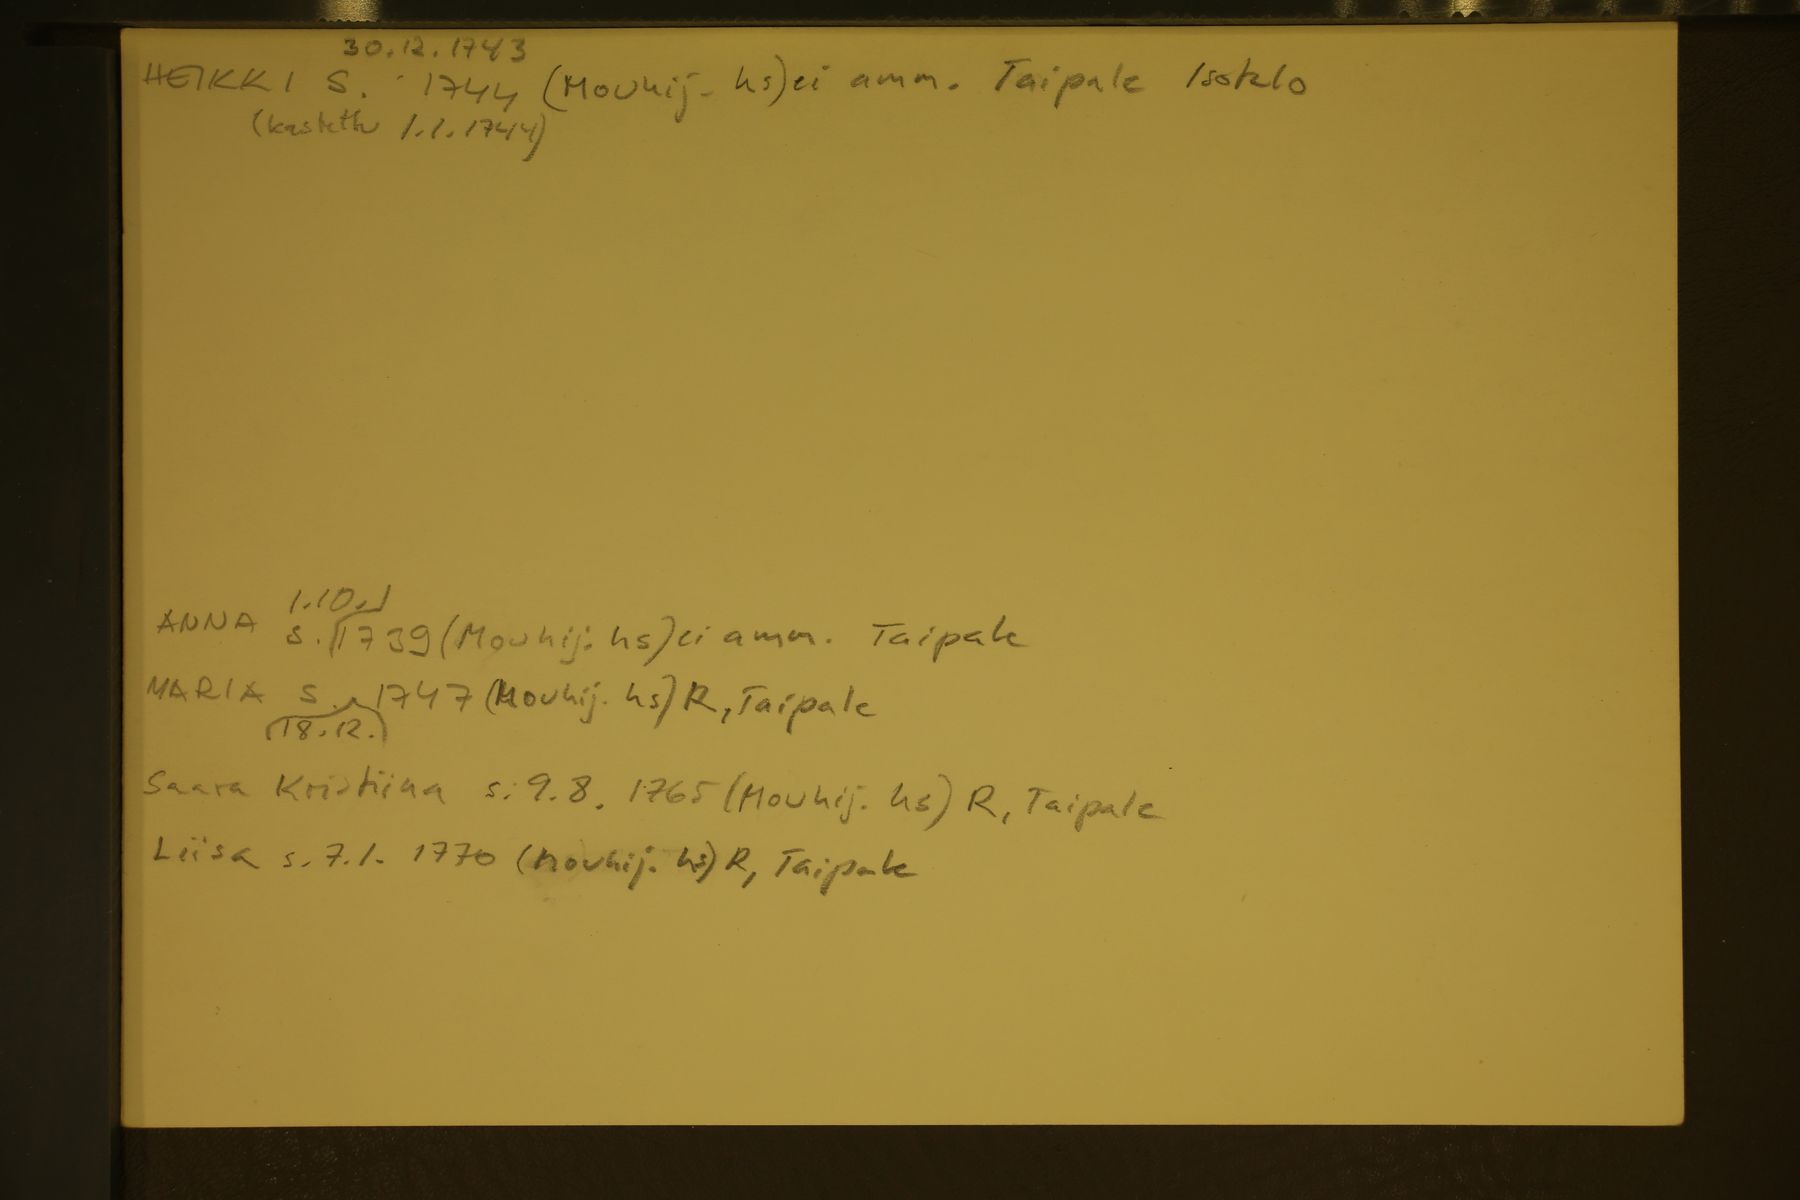 30.12.1743
HEIKKI S. 1744 (Mouhij. hs) ei amm. Taipale Isotalo
(kastettu 1.1.1744)
1.10.
ANNA s. 1739 (Mouhij. hs) ei amm. Taipale
MARIA S. 1747 (Mouhij. hs) R, Taipale
18.12.
Saara Kristiina s. 9.8. 1765 (Mouhij. hs) R, Taipale
Liisa s. 7.1. 1770 (Mouhij. hs) R, Taipale